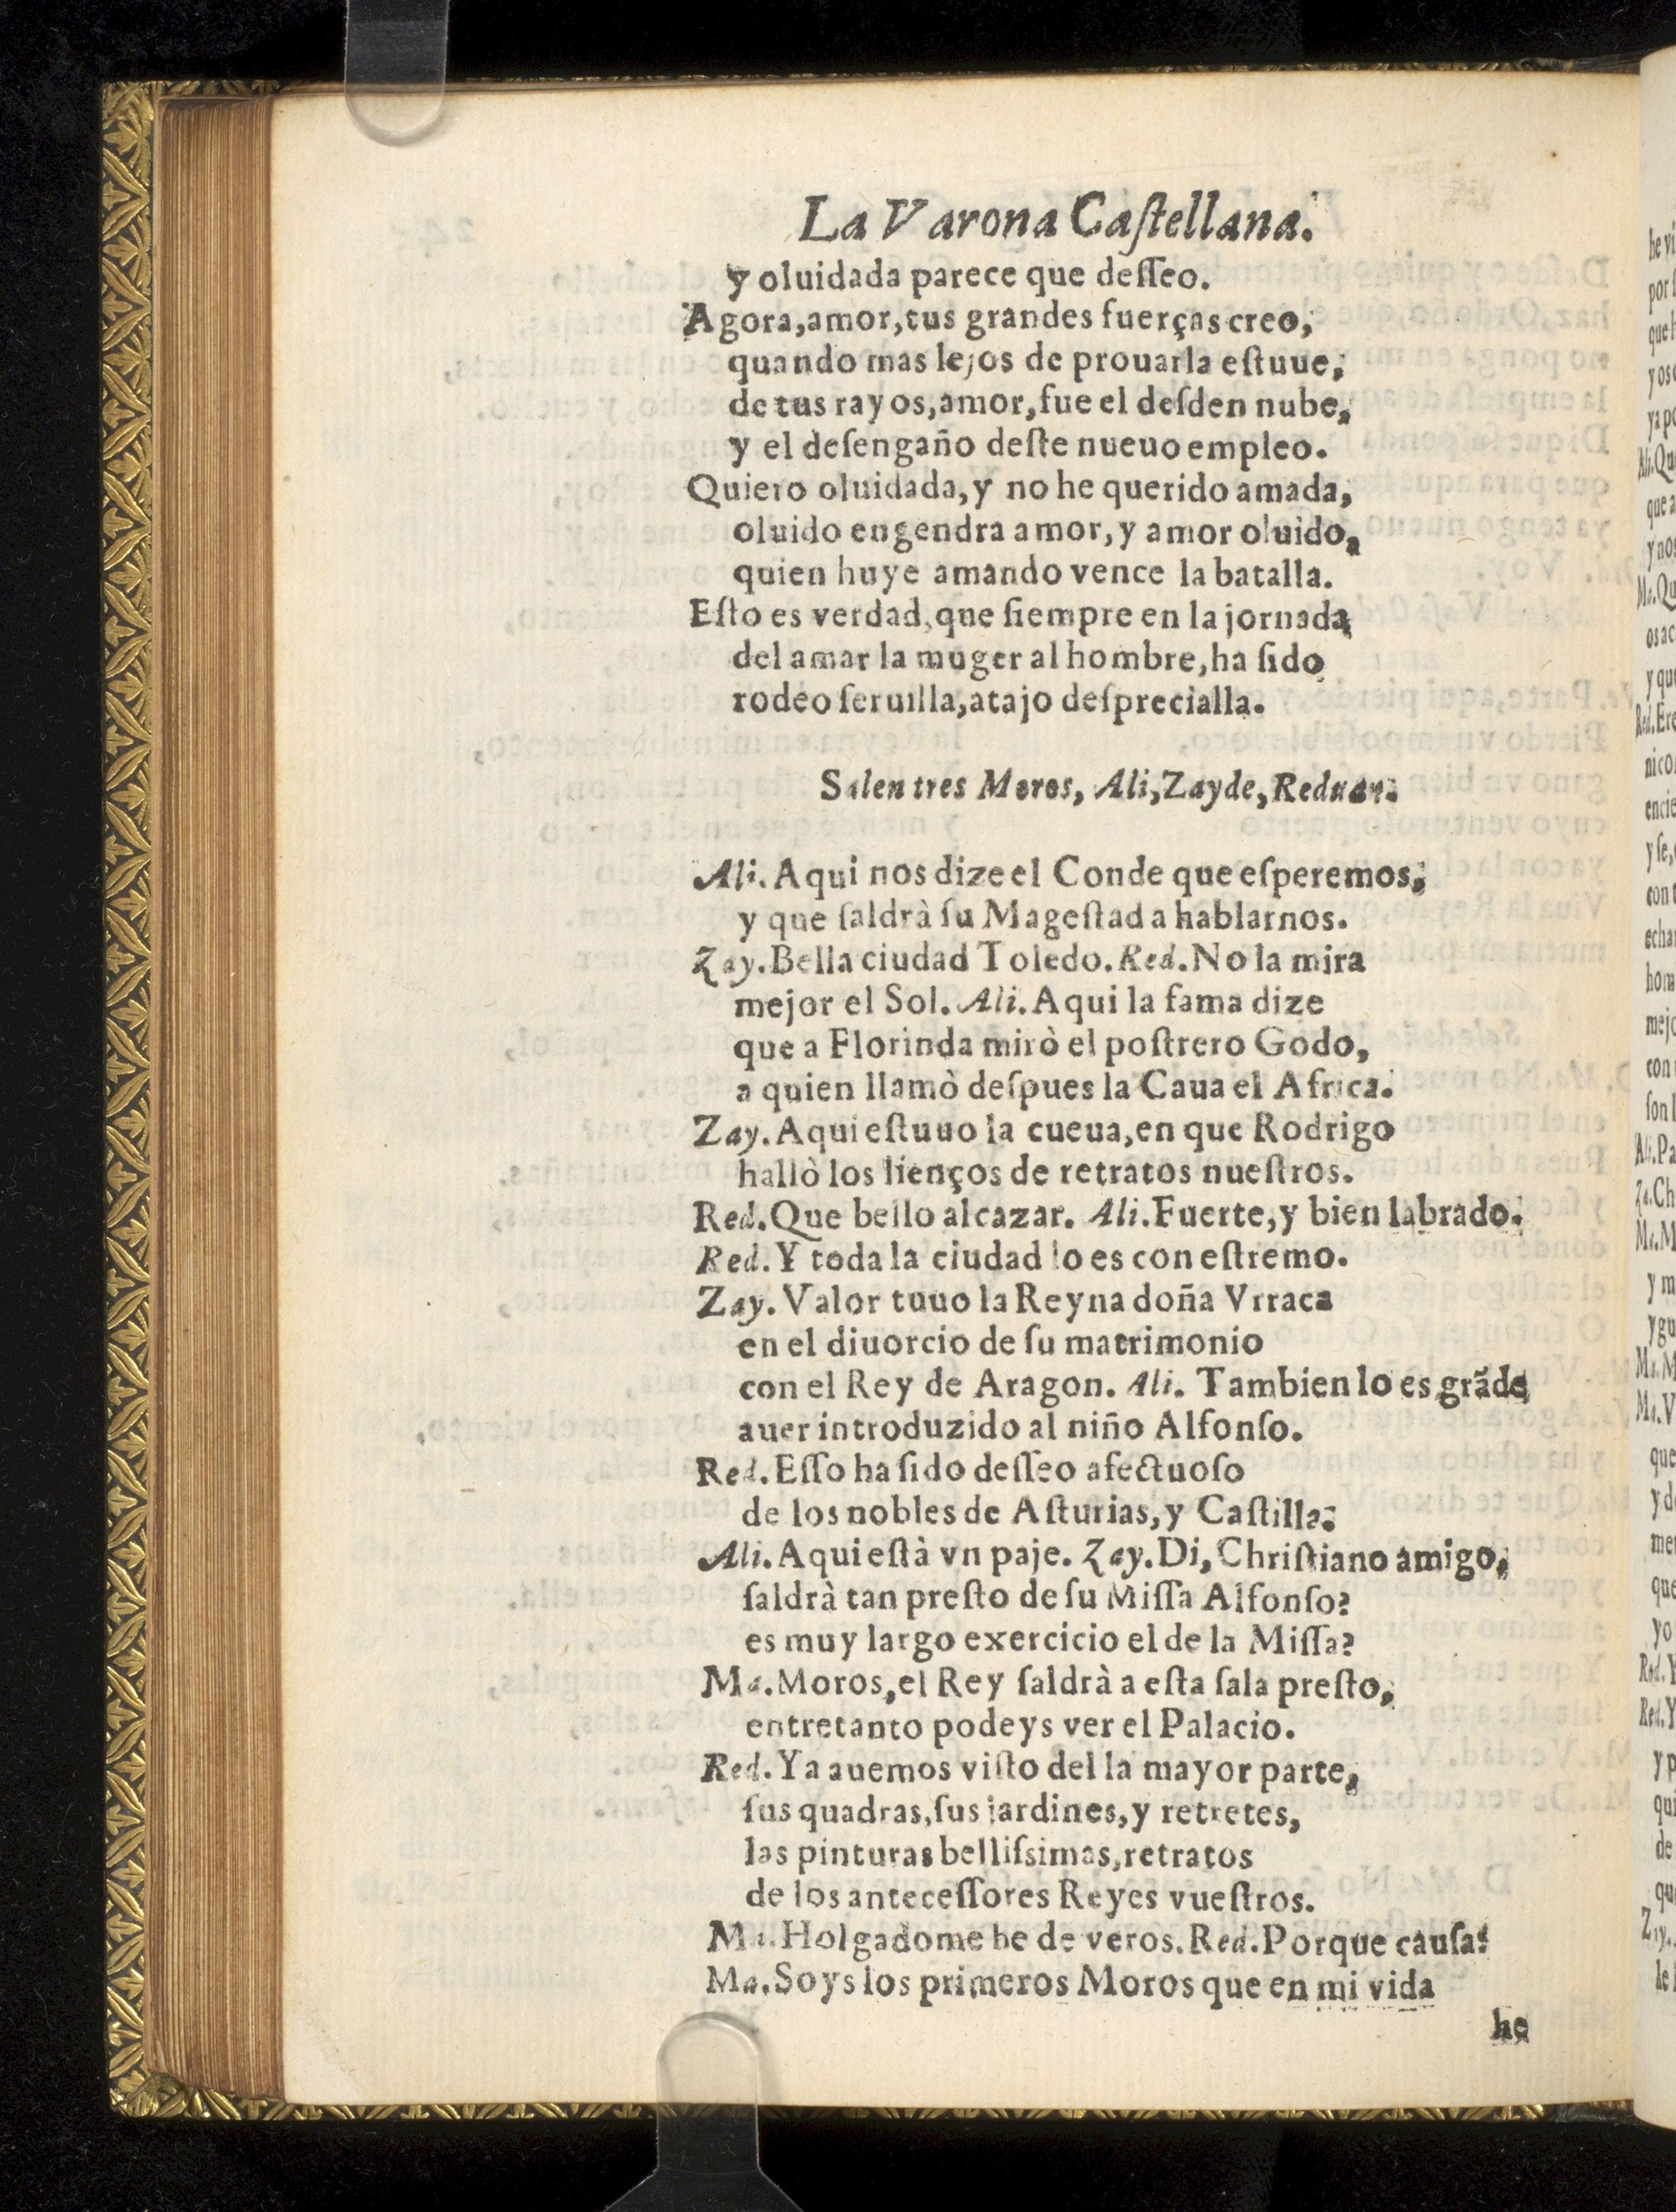 La Varona Caſtellana.
y oluidada parece que deſſeo.
Agora, amor, tus grandes fuerças creo,
quando mas lejos de prouarla eſtuue,
de tus rayos, amor, fue el deſden nube,
y el deſengaño deſte nueuo empleo.
Quiero oluidada, y no he querido amada,
oluido engendra amor, y amor oluido,
quien huye amando vence la batalla.
Eſto es verdad, que ſiempre en la jornada
del amar la muger al hombre, ha ſido
rodeo ſeruilla, atajo deſprecialla.
Salen tres Moros, Ali, Zayde, Reduan.
Ali. Aqui nos dize el Conde que eſperemos,
y que ſaldrà ſu Mageſtad a hablarnos.
Zay. Bella ciudad Toledo. Red. No la mira
mejor el Sol. Ali. Aqui la fama dize
que a Florinda mirò el poſtrero Godo,
a quien llamò deſpues la Caua el Africa.
Zay. Aqui eſtuuo la cueua, en que Rodrigo
hallò los lienços de retratos nueſtros.
Red. Que bello alcazar. Ali. Fuerte, y bien labrado.
Red. Y toda la ciudad lo es con eſtremo.
Zay. Valor tuuo la Reyna doña Vrraca
en el diuorcio de ſu matrimonio
con el Rey de Aragon. Ali. Tambien lo es grãde
auer introduzido al niño Alfonſo.
Red. Eſſo ha ſido deſſeo afectuoſo
de los nobles de Aſturias, y Caſtilla.
Ali. Aqui eſtà vn paje. Zay. Di, Chriſtiano amigo,
ſaldrà tan preſto de ſu Miſſa Alfonſo?
es muy largo exercicio el de la Miſſa?
Ma. Moros, el Rey ſaldrà a eſta ſala preſto,
entretanto podeys ver el Palacio.
Red. Ya auemos viſto del la mayor parte,
ſus quadras, ſus jardines, y retretes,
las pinturas belliſsimas, retratos
de los anteceſſores Reyes vueſtros.
Ma. Holgadome he de veros. Red. Porque cauſa?
Ma. Soys los primeros Moros que en mi vida
he